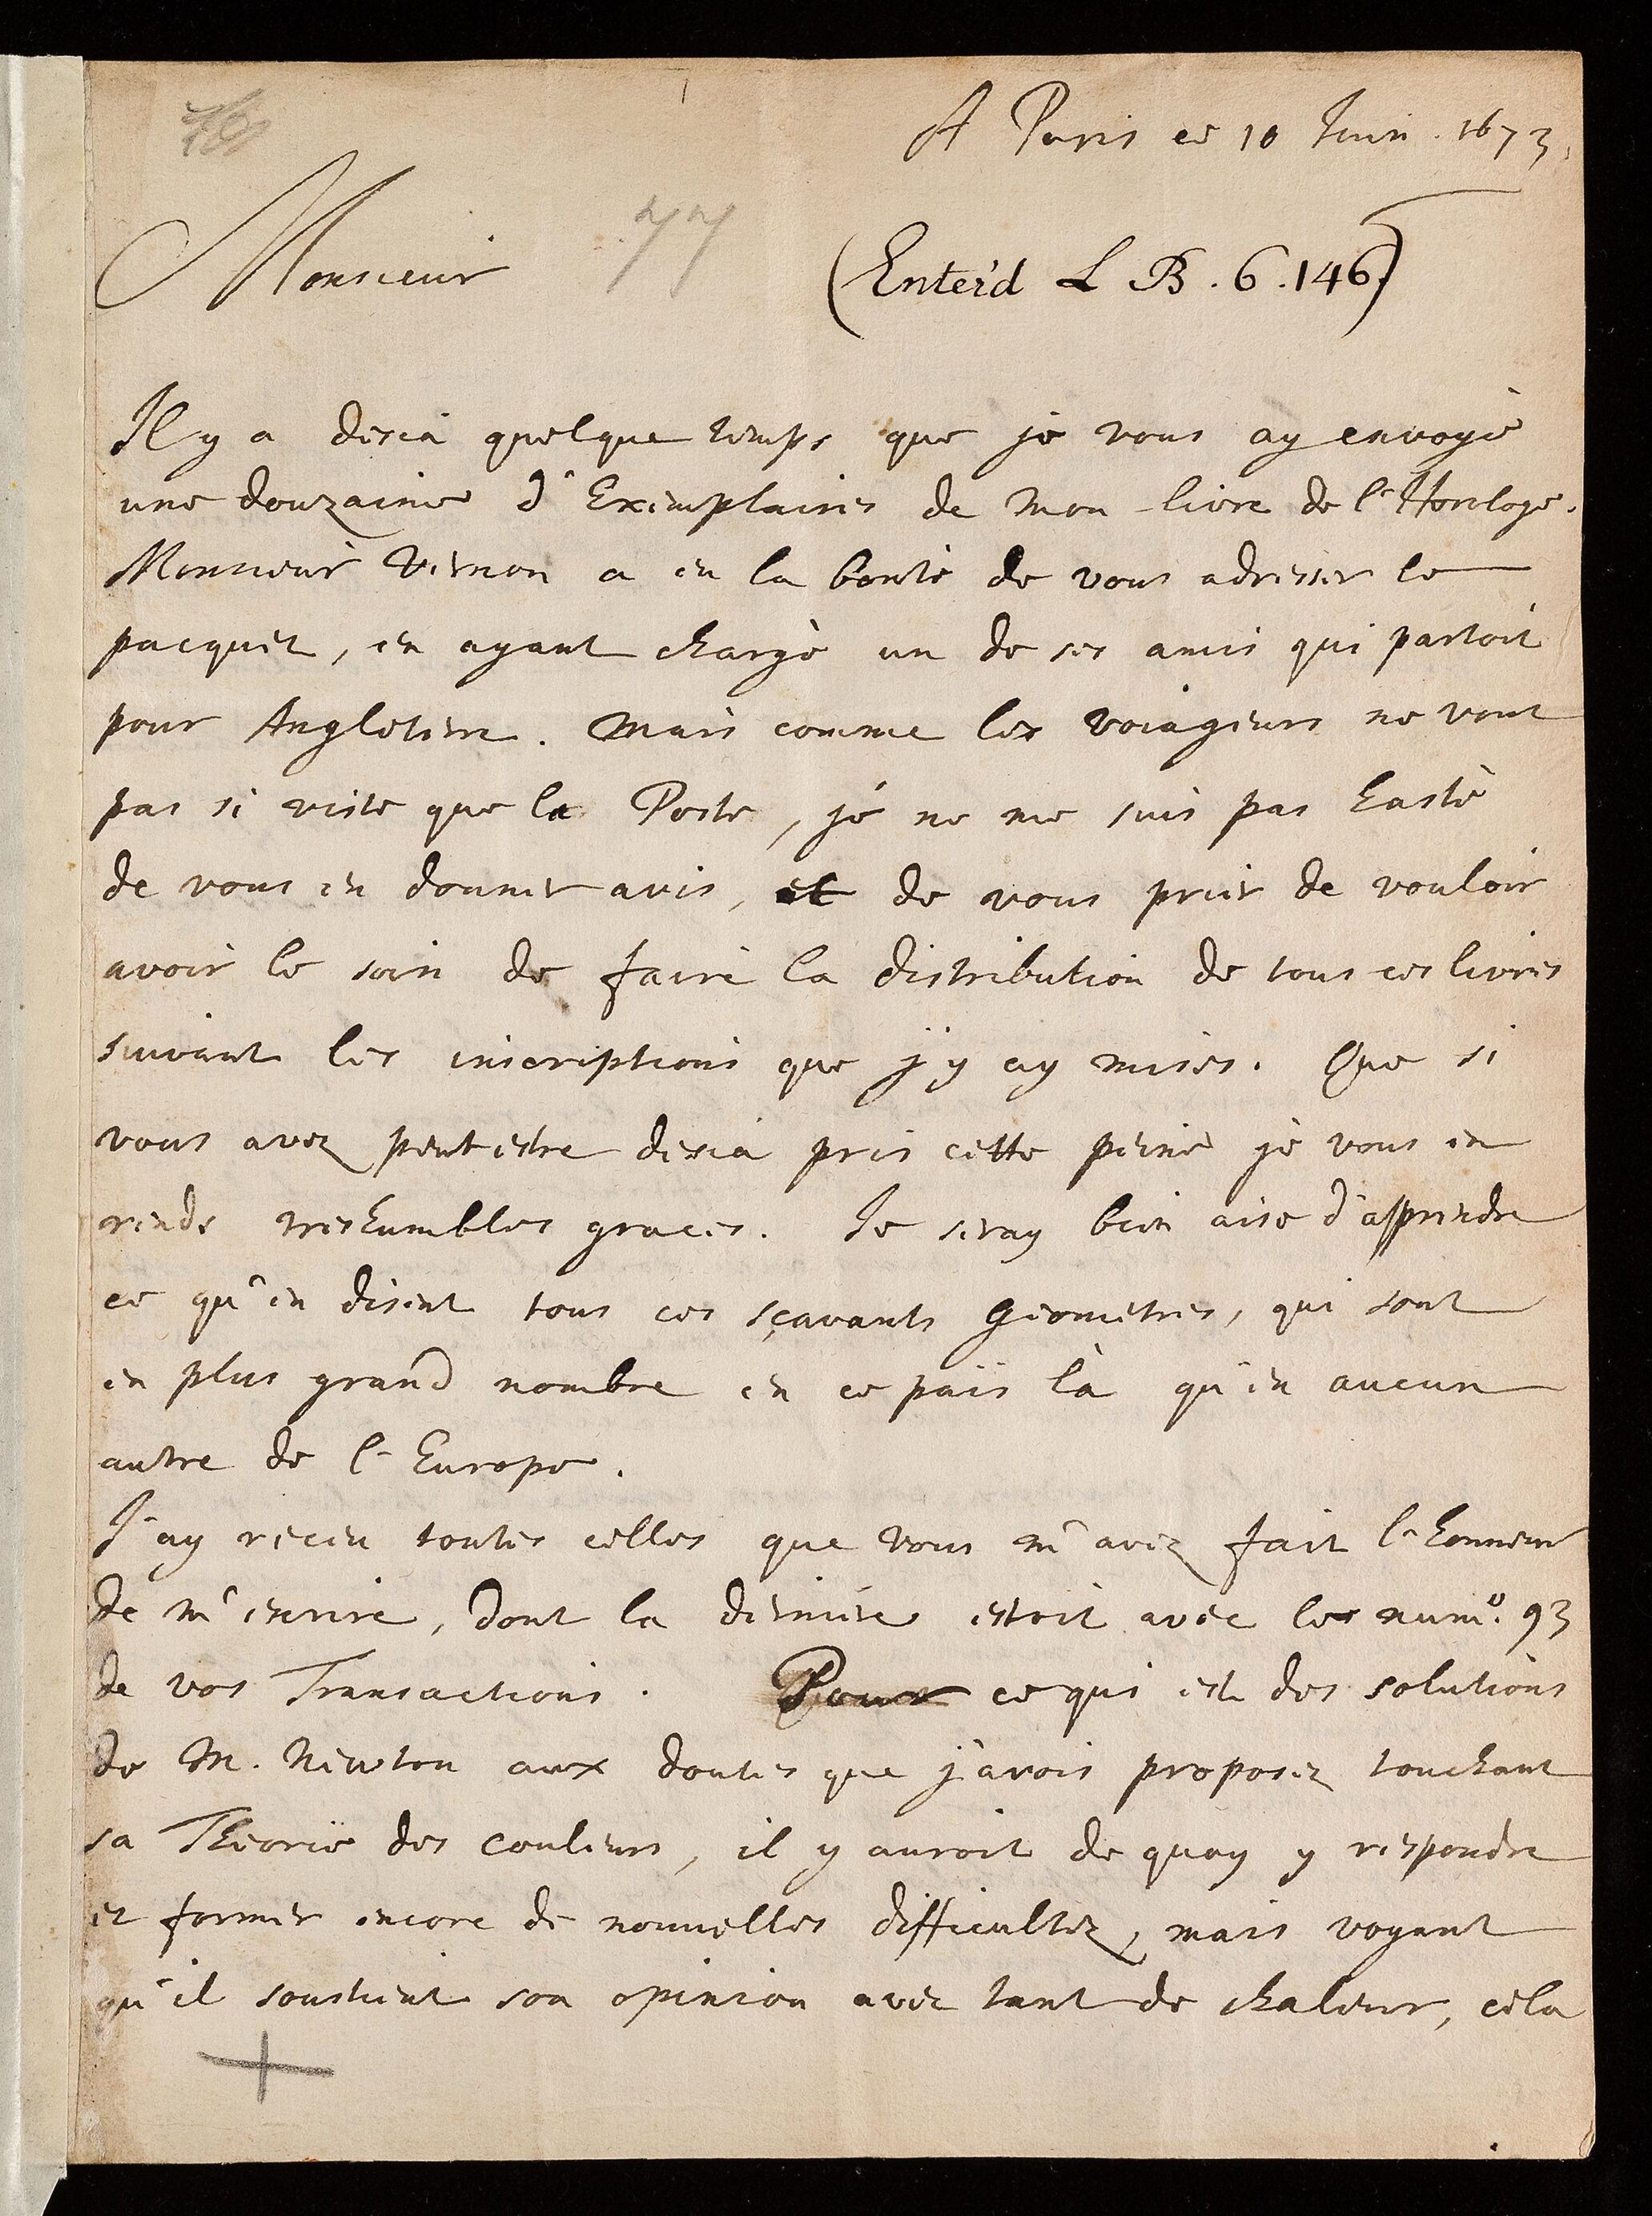 A Paris ce 10 Juin. 1673.
Monsieur
77
(Enter'd L B. 6. 146)
Il y a desia quelque temps que je vous ay envoyè
une douzaine d'Exemplaires de mon livre de l'Horologe.
Monsieur Vernon a eu la bontè de vous adresser le
pacquet, en ayant chargè un de ses amis qui partoit
pour Angleterre. Mais comme les voiageurs ne vont
pas si viste que la Poste, je ne me suis pas hastè
de vous en donner avis, et de vous prier de vouloir
avoir le soin de faire la distribution de tous ces livres
suivant les inscriptions que j'y ay mises. Que si
vous avez peutestre desia pris cette peine je vous en
rends treshumbles graces. Je seray bien aise d'apprendre
ce qu'en disent tous ces sçavants Geometres, qui sont
en plus grand nombre en ce païs là qu'en aucun
autre de l'Europe.
J'ay receu toutes celles que vous m'avez fait l'honneur
de m'escrire, dont la derniere estoit avec les numo. 93
de vos Transactions. Pour ce qui est des solutions
de M. Newton aux doutes que j'avois proposez touchant
sa Theorie des couleurs, il y auroit de quoy y respondre
et former encore de nouvelles difficultez, mais voyant
qu'il soustient son opinion avec tant de chaleur, cela